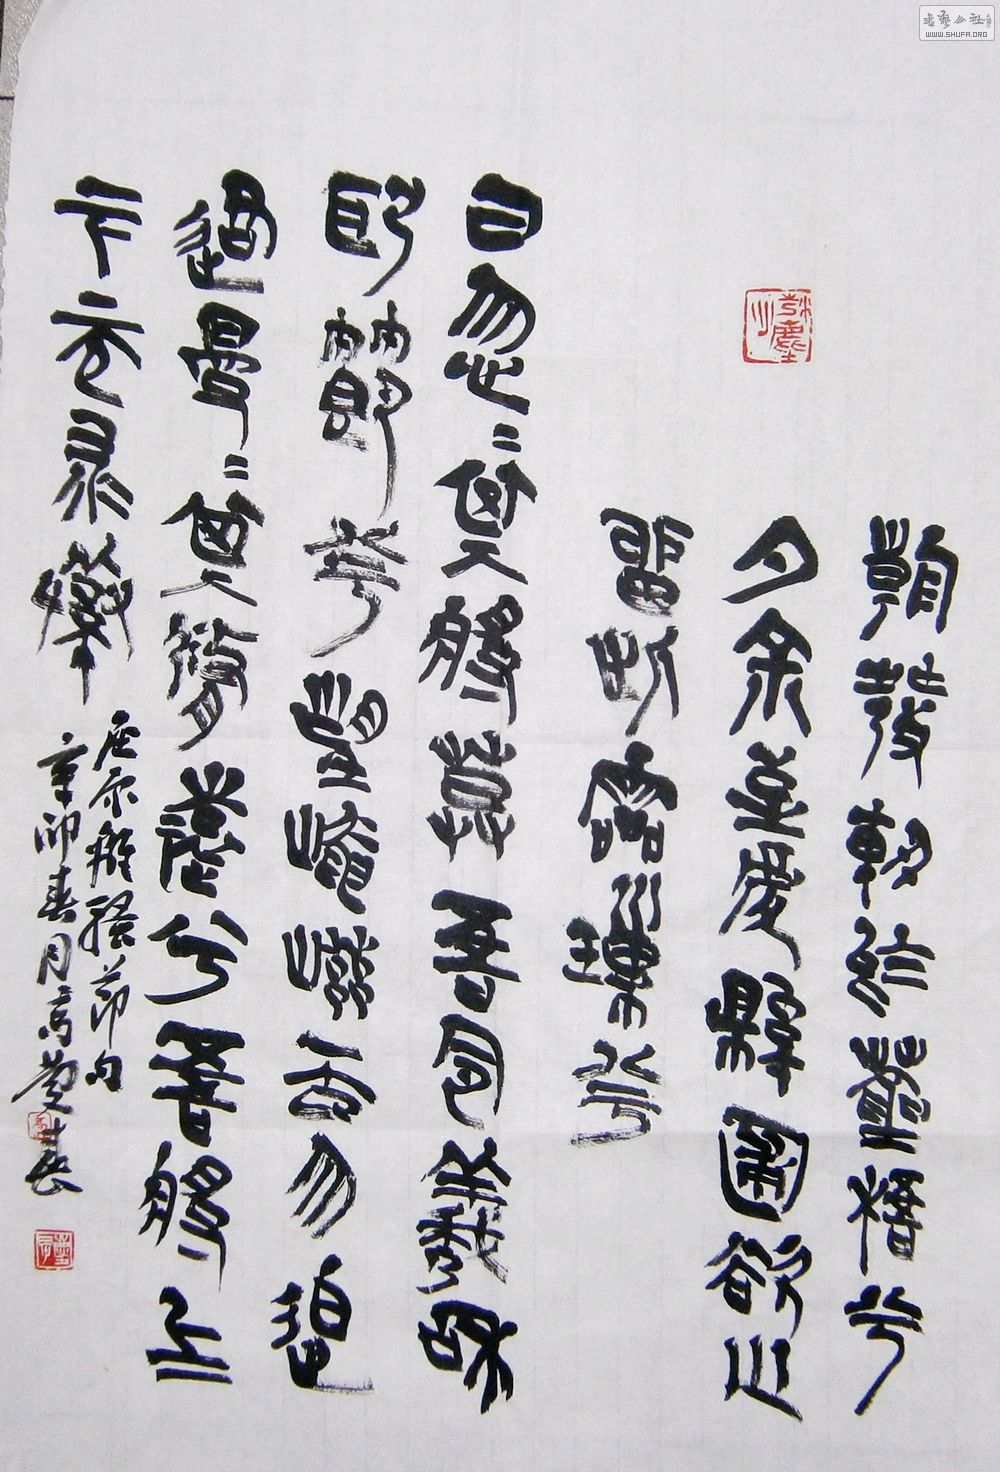 朝發軔於蒼梧兮
夕余至乎縣圃欲少
留此靈瑣兮
日忽〻其將暮吾令羲和
弭節兮望崦嵫而勿迫
路曼〻其修遠兮吾將上
下而求索
屈原離騷節句
辛卯春月高慶春
書藝公社
WWW.SHUFA.ORG